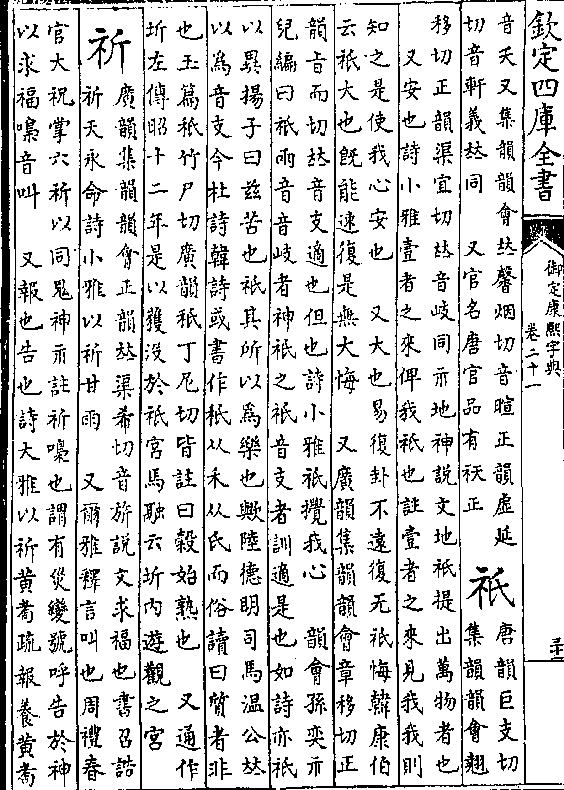 欽定四庫全書
御定康熙字典
卷二十一
音天又集韻韻會𠀤馨烟切音暄正韻虛延
切音軒義𠀤同　又官名唐官品有祆正
祇
唐韻巨支切
集韻韻會翹
移切正韻渠宜切𠀤音岐同示地神說文地祇提出萬物者也
又安也詩小雅壹者之來俾我祇也註壹者之來見我我則
知之是使我心安也　又大也易復卦不遠復无祇悔韓康伯
云祇大也旣能速復是無大悔　又廣韻集韻韻會章移切正
韻旨而切𠀤音支適也但也詩小雅祇攪我心　韻會孫奕示
兒編曰祇兩音音岐者神祇之祇音支者訓適是也如詩亦祇
以異揚子曰兹苦也祇其所以爲樂也歟陸德明司馬溫公𠀤
以爲音支今杜詩韓詩或書作秖从禾从氏而俗讀曰質者非
也玉篇秖竹尸切廣韻秖丁尼切皆註曰穀始熟也　又通作
圻左傳昭十二年是以獲沒於祇宮馬融云圻內遊觀之宮
祈
廣韻集韻韻會正韻𠀤渠希切音旂說文求福也書召誥
祈天永命詩小雅以祈甘雨　又爾雅釋言叫也周禮春
官大祝掌六祈以同鬼神示註祈嘄也謂有災變號呼告於神
以求福嘄音叫　又報也告也詩大雅以祈黄耇疏報養黄耇